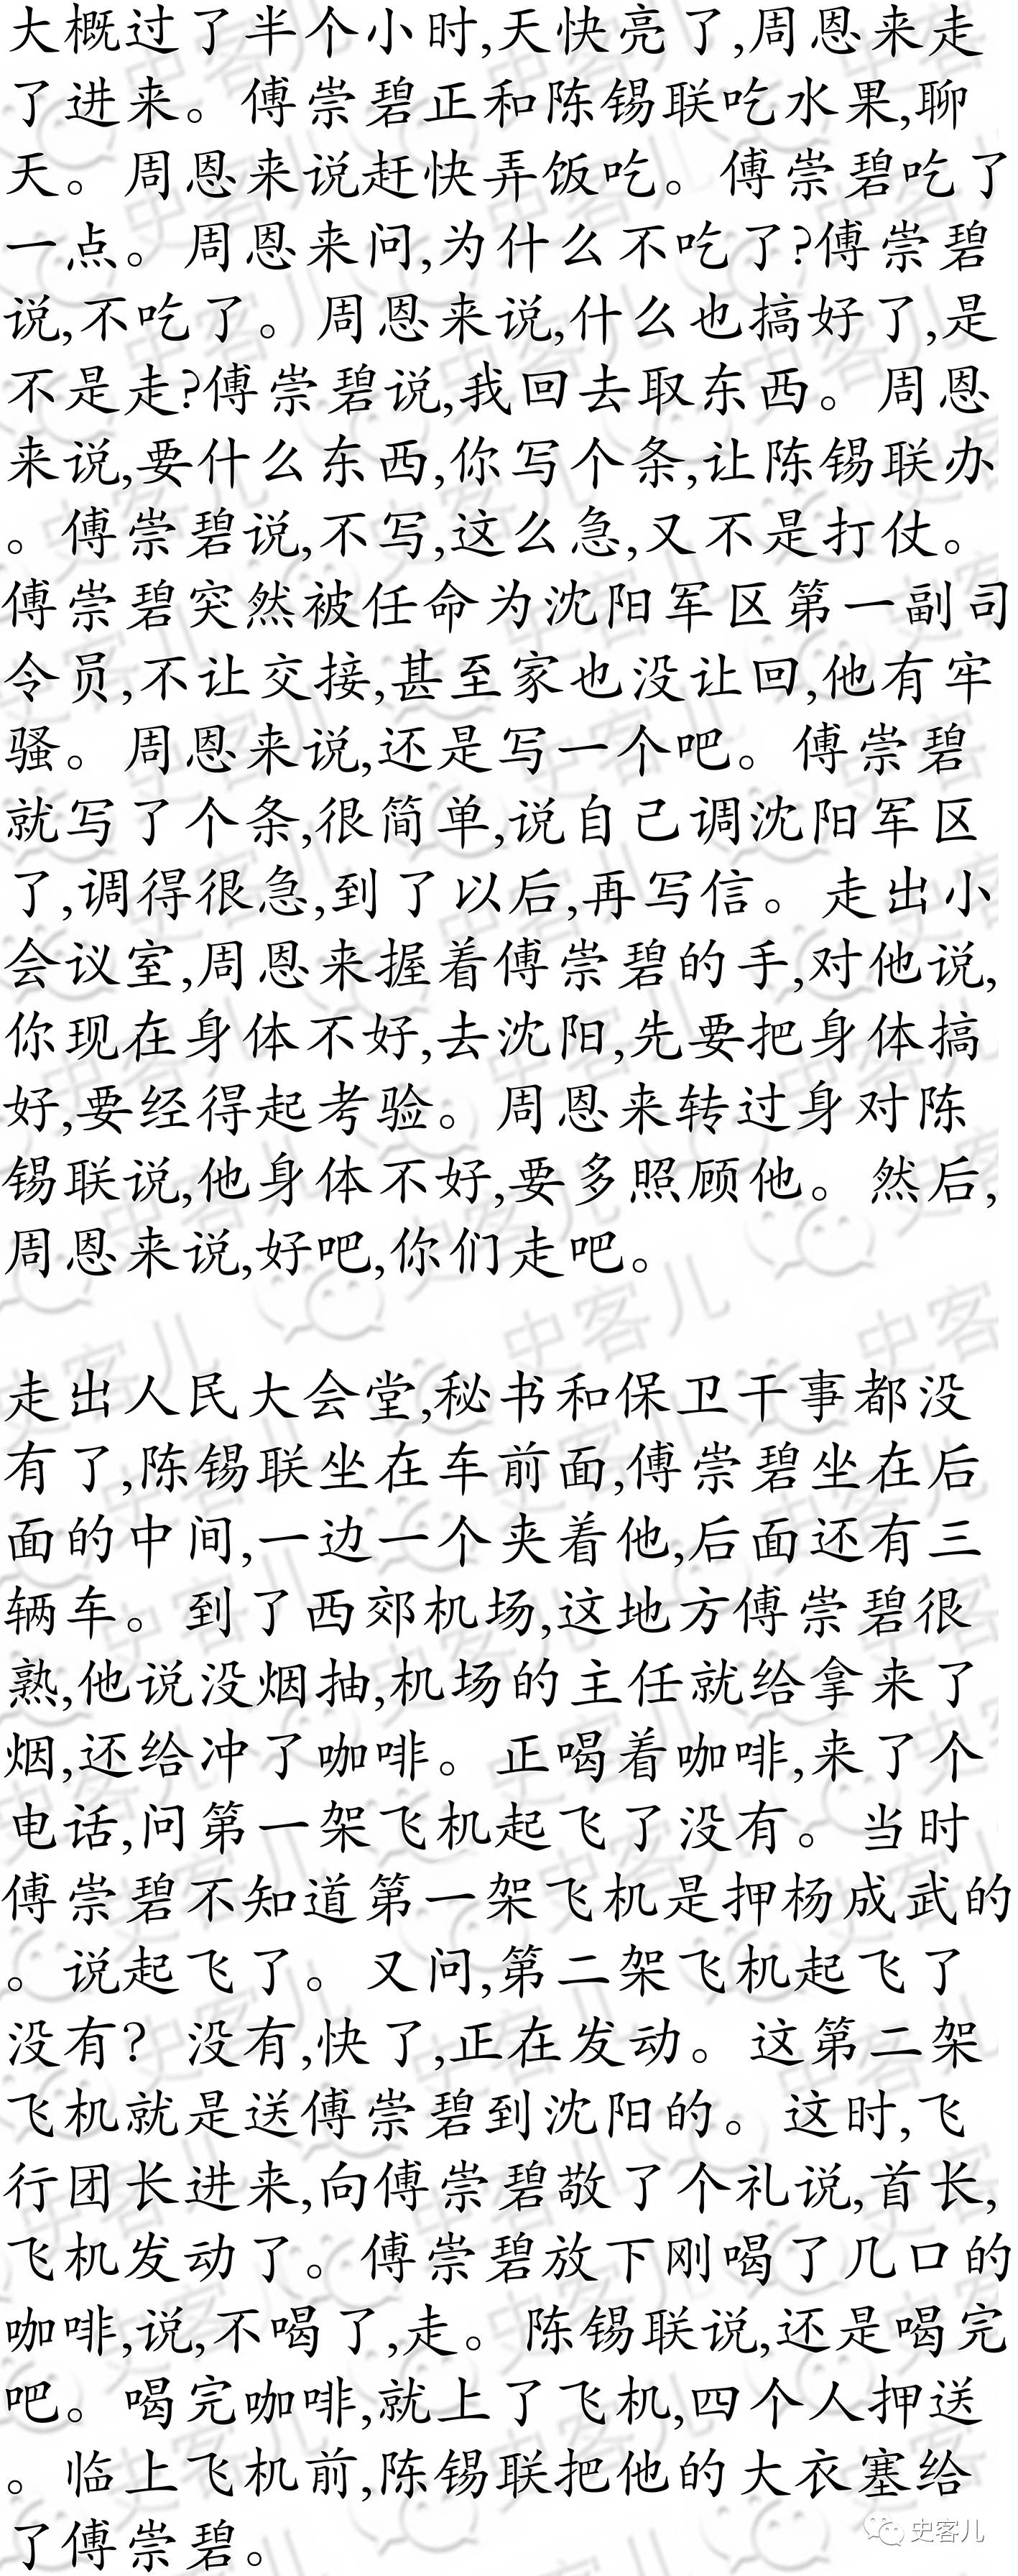 大概过了半个小时,天快亮了,周恩来走
了进来。傅崇碧正和陈锡联吃水果,聊
天。周恩来说赶快弄饭吃。傅崇碧吃了
一点。周恩来问,为什么不吃了?傅崇碧
说,不吃了。周恩来说,什么也搞好了,是
不是走?傅崇碧说,我回去取东西。周恩
来说,要什么东西,你写个条,让陈锡联办
。傅崇碧说,不写,这么急,又不是打仗。
傅崇碧突然被任命为沈阳军区第一副司
令员,不让交接,甚至家也没让回,他有牢
骚。周恩来说,还是写一个吧。傅崇碧
就写了个条,很简单,说自己调沈阳军区
了,调得很急,到了以后,再写信。走出小
会议室,周恩来握着傅崇碧的手,对他说,
你现在身体不好,去沈阳,先要把身体搞
好,要经得起考验。周恩来转过身对陈
锡联说,他身体不好,要多照顾他。然后,
周恩来说,好吧,你们走吧。
走出人民大会堂,秘书和保卫干事都没
有了,陈锡联坐在车前面,傅崇碧坐在后
面的中间,一边一个夹着他,后面还有三
辆车。到了西郊机场,这地方傅崇碧很
熟,他说没烟抽,机场的主任就给拿来了
烟,还给冲了咖啡。正喝着咖啡,来了个
电话,问第一架飞机起飞了没有。当时
傅崇碧不知道第一架飞机是押杨成武的
。说起飞了。又问,第二架飞机起飞了
没有?没有,快了,正在发动。这第二架
飞机就是送傅崇碧到沈阳的。这时,飞
行团长进来,向傅崇碧敬了个礼说,首长,
飞机发动了。傅崇碧放下刚喝了几口的
咖啡,说,不喝了,走。陈锡联说,还是喝完
吧。喝完咖啡,就上了飞机,四个人押送
。临上飞机前,陈锡联把他的大衣塞给
了傅崇碧。
史客儿